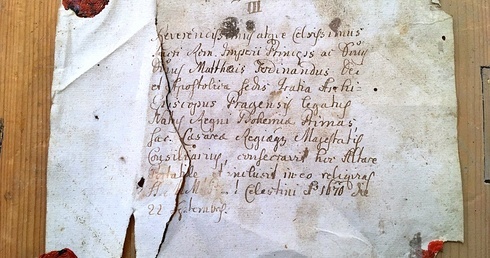 III
Reverendissimus atque Celsissimus
Sacri Rom. Imperii Princeps ac Dnus
Dnus Matthæus Ferdinandus Dei
et Apostolica Sedis Gratia Archi-
Episcopus Pragensis Legatus
Natus Regni Bohemia Primas
Sac. Cæsarea Regiæq Majestatis
Consiliarius, consecravit hoc Altare
Portatile et inclusit in eo reliquias
S. Celestini 1670
22 Septembris.